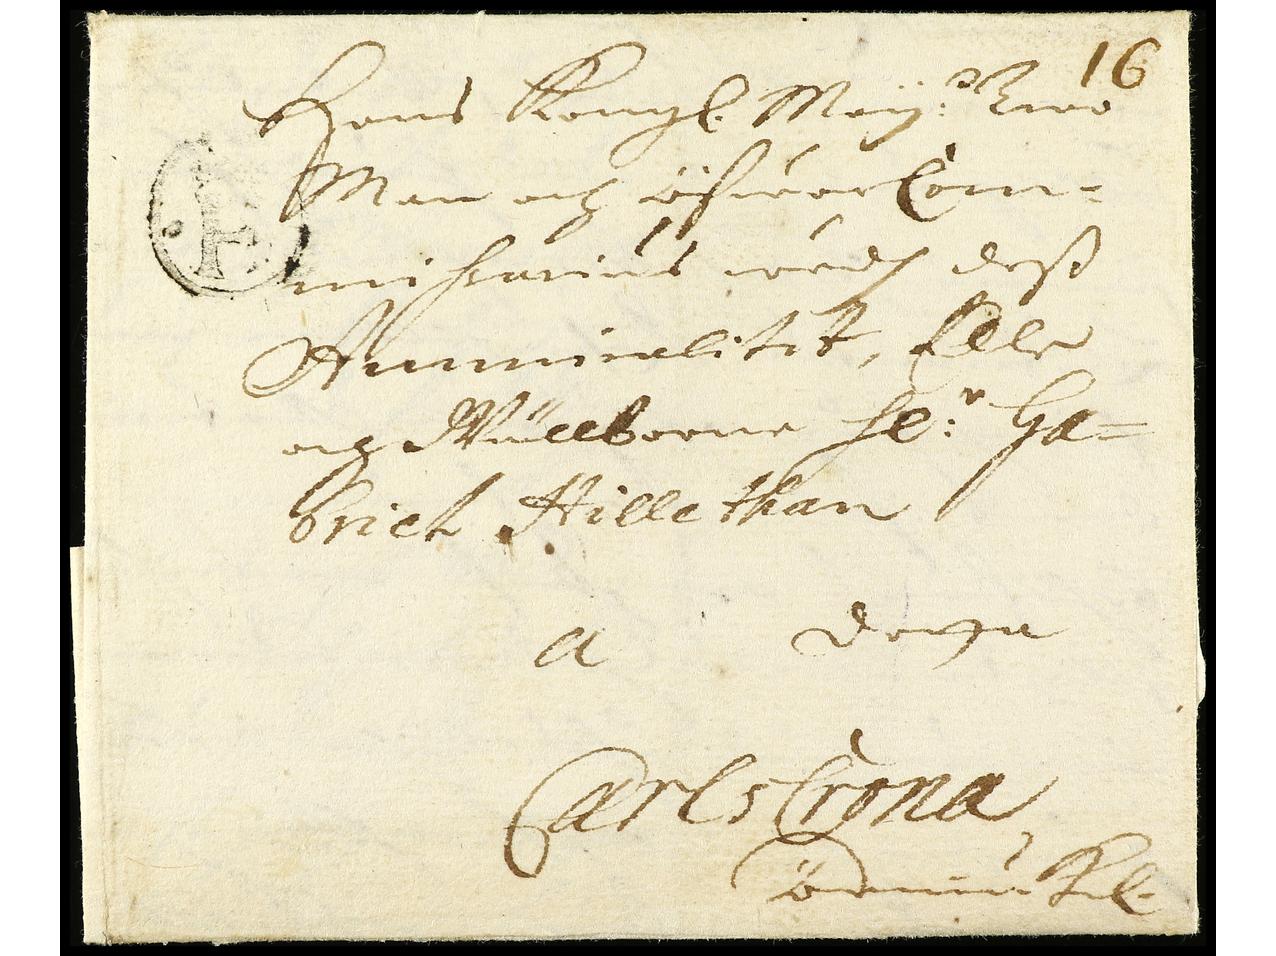 16
Hans Kongl. Maij:tz Troo
Man och öfwer Com-
missarius wedh dess
Ammiralitet, Edle
och Wällborne He:r Ga=
briel Hillethan
a
Carls Crona